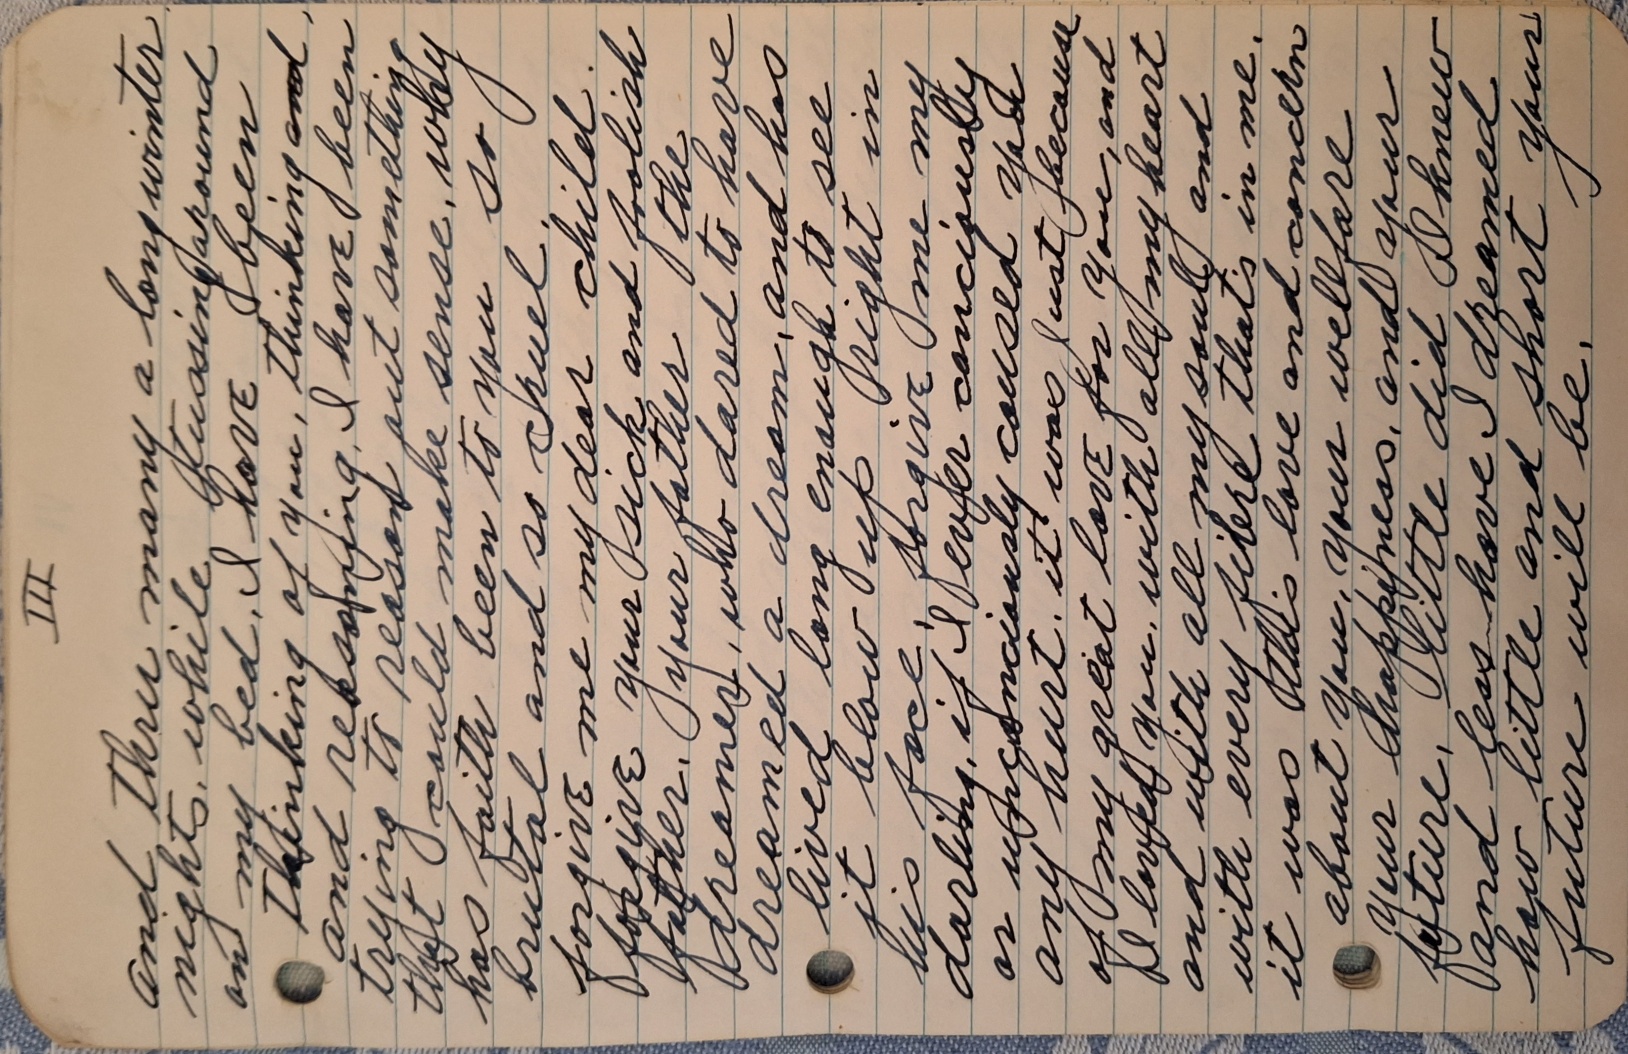 III
and thru many a long winter
nights, while tussing around
on my bed, I have been
Thinking of you, thinking and,
and reasoning, I have been
trying to reason out something
that could make sense, why
has faith been to you so
brutal and so cruel,
forgive me my dear child.
forgive your sick and foolish
father, your father the
dreamer, who dared to have
dreamed a dream, and has
lived long enough to see
it blow up right in
his face, forgive me my
darling, if I ever conciously
or unconciously caused you
any hurt, it was just because
of my great love for you, and
I loved you, with all my heart
and with all my soul, and
with every fibre that's in me.
it was this love and concern
about you, your wellfare
your happyness, and your
future, little did I knew
and less have I dreamed
how little and short your
future will be.